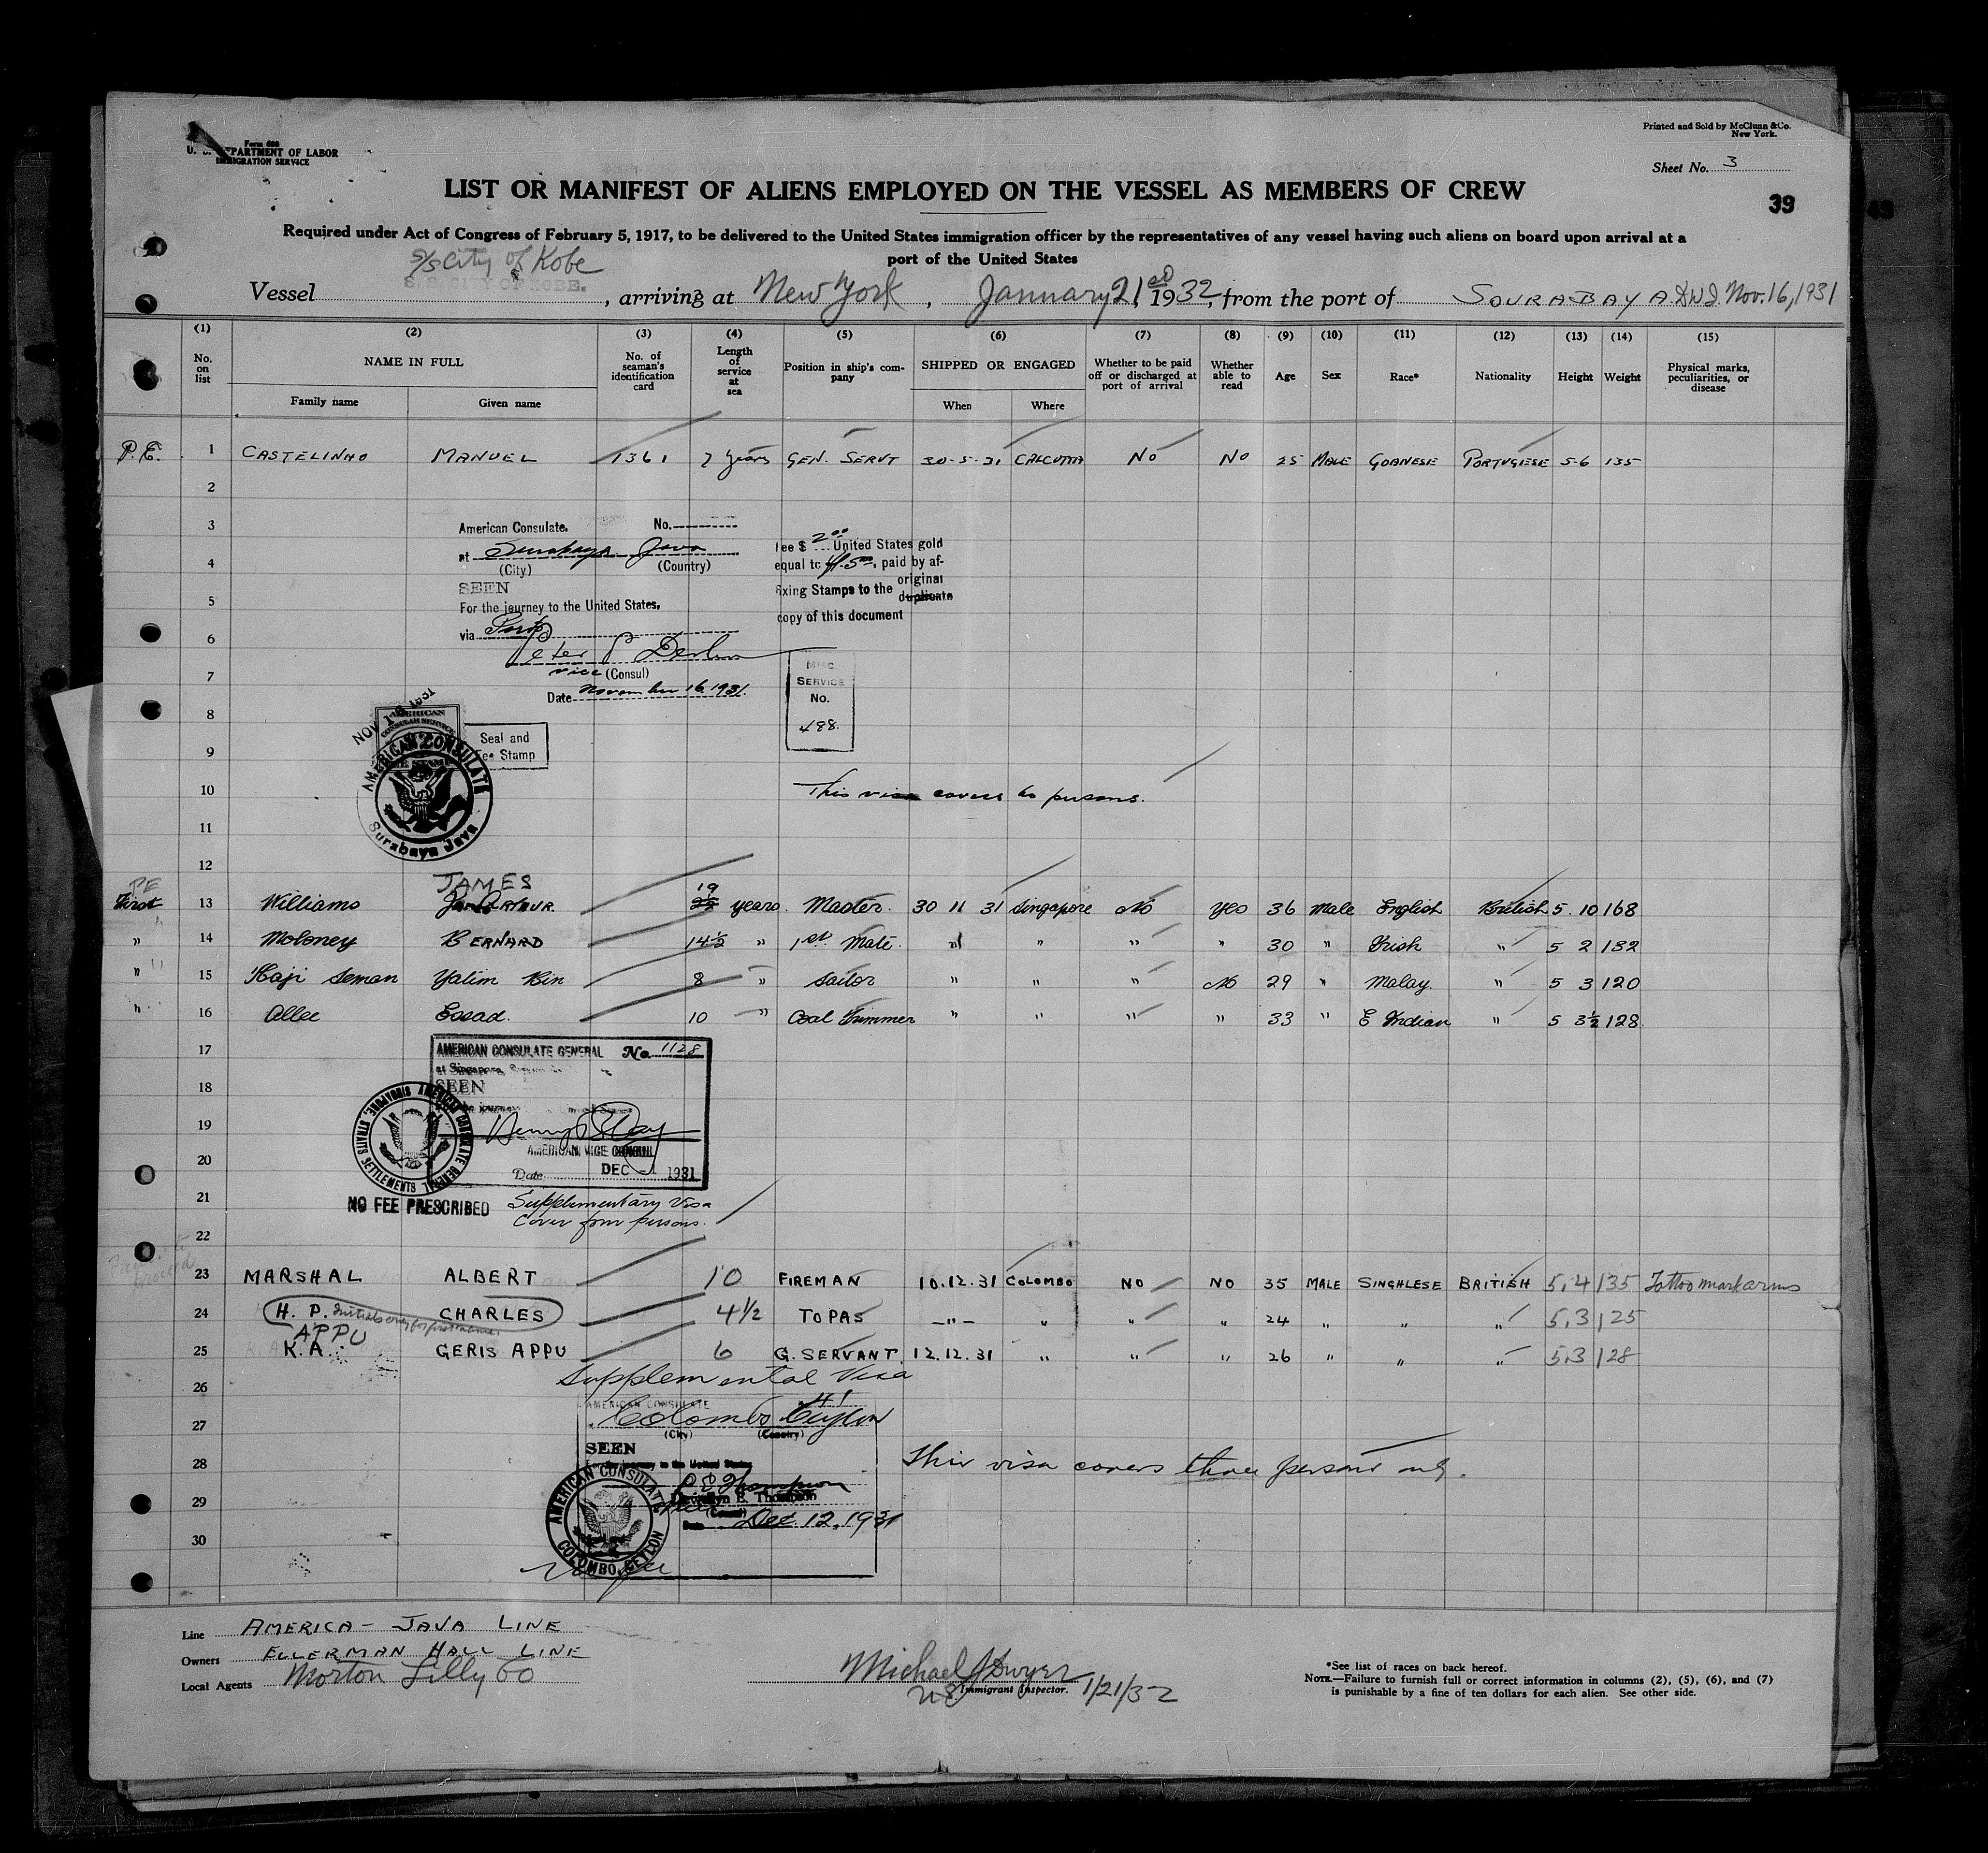 Form 680
U. S. DEPARTMENT OF LABOR
IMMIGRATION SERVICE
Printed and Sold by McClunn & Co.
New York.
Sheet No. 3
LIST OR MANIFEST OF ALIENS EMPLOYED ON THE VESSEL AS MEMBERS OF CREW
39
Required under Act of Congress of February 5, 1917, to be delivered to the United States immigration officer by the representatives of any vessel having such aliens on board upon arrival at a
port of the United States
S/S City of Kobe
S.S. CITY OF KOBE.
Vessel , arriving at New York , January 21st 1932, from the port of SOURABAYA D.W.I. Nov. 16, 1931
(1) (2) (3) (4) (5) (6) (7) (8) (9) (10) (11) (12) (13) (14) (15)
No. on list NAME IN FULL Family name Given name No. of seaman's identification card Length of service at sea Position in ship's company SHIPPED OR ENGAGED When Where Whether to be paid off or discharged at port of arrival Whether able to read Age Sex Race* Nationality Height Weight Physical marks, peculiarities, or disease
P.E. 1 CASTELINHO MANUEL 1361 7 years GEN. SERVT 30-5-31 CALCUTTA NO NO 25 MALE GOANESE PORTUGIESE 5-6 135
2
3
American Consulate. No.
at Surabaya Java
(City) (Country)
4
SEEN
5
For the journey to the United States.
via Ports
6
Peter
vice (Consul)
7
Date November 16, 1931.
Fee $ 2.00 United States gold
equal to fl. 5.00, paid by af-
fixing Stamps to the original
duplicate
copy of this document
MISC.
SERVICE
No.
488.
8
NOV 16 1931
AMERICAN
CONSULAR SERVICE
Seal and
Fee Stamp
9
AMERICAN CONSULATE
Surabaya Java
10
This visa covers persons.
11
12
PE JAMES
First 13 Williams ARTHUR. 19 years Master. 30 11 31 Singapore No Yes 36 Male English British 5. 10 168
" 14 Moloney BERNARD 14½ " 1st Mate. " " " " 30 " Irish " 5 2 132
" 15 Haji Seman Yatim Bin 8 " Sailor " " " No 29 " Malay. " 5 3 120
" 16 Allee Essad. 10 " Coal Trimmer " " " " 33 " E Indian " 5 3½ 128.
17
AMERICAN CONSULATE GENERAL No. 1128
at Singapore
18
SEEN
19
AMERICAN VICE CONSUL
20
Date DEC -1 1931
AMERICAN CONSULATE GENERAL SINGAPORE, STRAITS SETTLEMENTS
21
NO FEE PRESCRIBED Supplementary Visa
Cover four persons.
22
23 MARSHAL ALBERT 10 FIREMAN 10.12.31 COLOMBO NO NO 35 MALE SINGHLESE BRITISH 5,4 135 Tattoo mark arms
24 H. P. Initials only for first name. CHARLES 4 1/2 TOPAS -"- " " " 24 " " " 5,3 125
APPU
25 K.A. GERIS APPU 6 G. SERVANT. 12.12.31 " " " 26 " " " 5,3 128
Supplemental Visa
26
AMERICAN CONSULATE
Colombo Ceylon
27
(City) (Country)
SEEN
28
For the journey to the United States
This visa covers three persons only.
L E Thompson
Llewellyn E. Thompson
29
Vice (Consul)
Date Dec. 12, 1931
AMERICAN CONSULATE
COLOMBO, CEYLON
30
No fee
Line AMERICA - JAVA LINE
Owners ELLERMAN HALL LINE
Local Agents Morton Lilly Co
Michael J Dwyer
US Immigrant Inspector. 1/21/32
*See list of races on back hereof.
NOTE.—Failure to furnish full or correct information in columns (2), (5), (6), and (7)
is punishable by a fine of ten dollars for each alien. See other side.